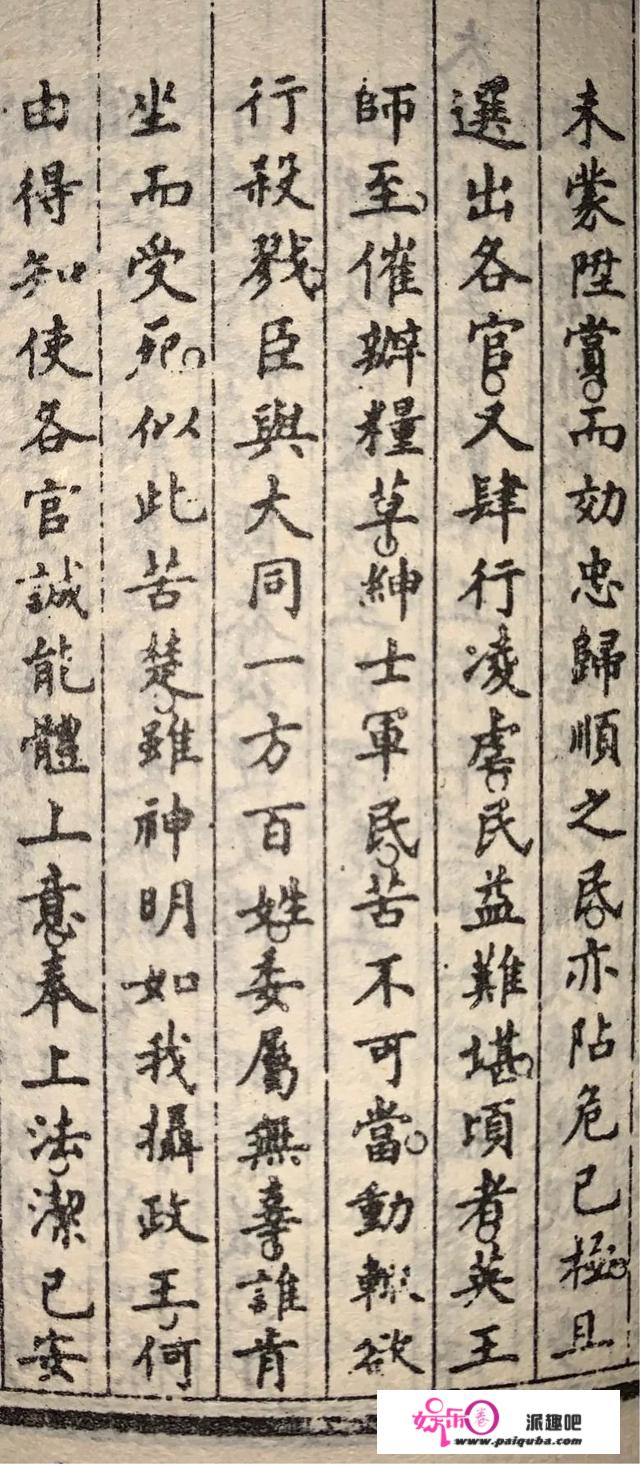 未蒙陞賞而効忠歸順之民亦阽危已極且
選出各官又肆行凌虐民益難堪頃者英王
師至催辦糧草紳士軍民苦不可當動輙欲
行殺戮臣與大同一方百姓委屬無辜誰肯
坐而受死似此苦楚雖神明如我攝政王何
由得知使各官誠能體上意奉上法潔已安
娛乐卷
派趣吧
www.paiquba.com